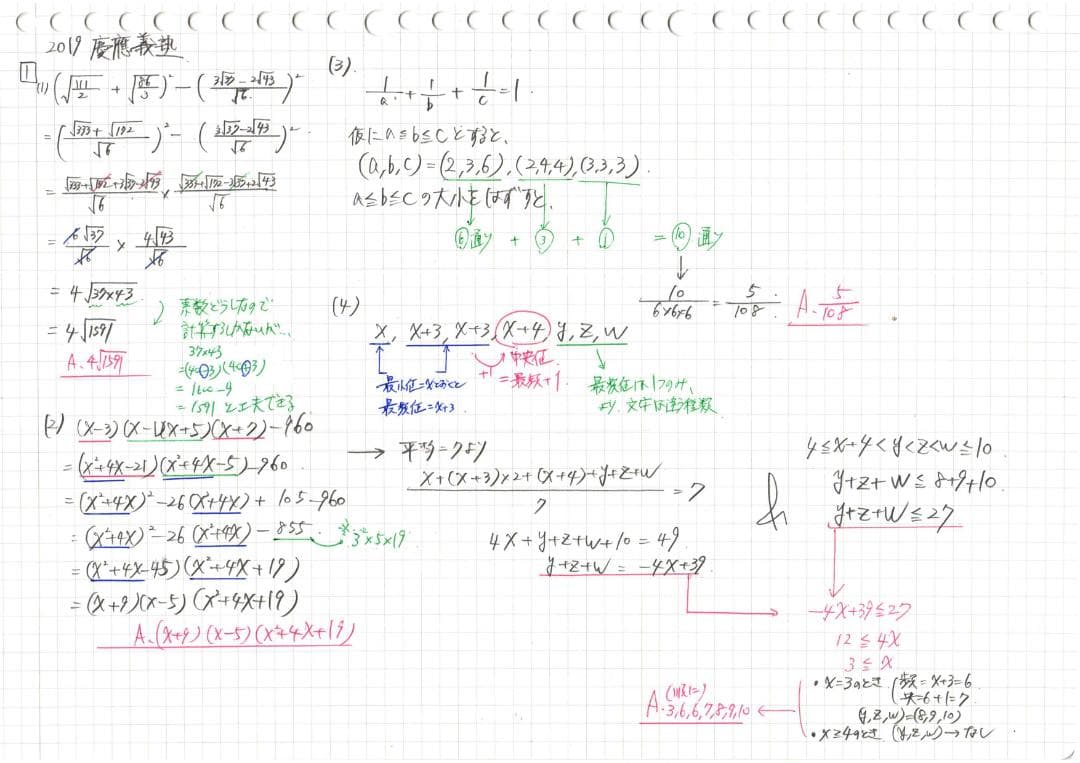 2019 慶應義塾
1
(1) (√111/2 + √86/3)² − (3√37−2√43/√6)²
= (√333+√172/√6)² − (3√37−2√43/√6)²
= √333+√172+3√37−2√43/√6 × √333+√172−3√37+2√43/√6
= 6√37/√6 × 4√43/√6
= 4√37×43
= 4√1591
A. 4√1591
素数どうしなので
計算するしかないが…
37×43
=(40−3)(40+3)
= 1600−9
= 1591 と工夫できる
(2) (x−3)(x−1)(x+5)(x+7)−960
= (x²+4x−21)(x²+4x−5)−960
= (x²+4x)²−26(x²+4x)+105−960
= (x²+4x)²−26(x²+4x)−855
3²×5×19
= (x²+4x−45)(x²+4x+19)
= (x+9)(x−5)(x²+4x+19)
A.(x+9)(x−5)(x²+4x+19)
(3).
1/a + 1/b + 1/c = 1.
仮にa≦b≦cとすると、
(a,b,c)=(2,3,6),(2,4,4),(3,3,3)
a≦b≦cの大小をはずすと、
6通り + 3 + 1 = 10通り
10/6×6×6 = 5/108.
A. 5/108
(4)
x, x+3, x+3, x+4, y, z, w
+1
中央値
=最頻+1.
最頻値=x+3.
最頻値は1つのみ、
→ 平均=7より
x+(x+3)×2+(x+4)+y+z+w/7 = 7
4x+y+z+w+10=49
y+z+w = −4x+39
&
4≦x+4<y<z<w≦10
y+z+w≦8+9+10.
y+z+w≦27
−4x+39≦27
12≦4x
3≦x
・x=3のとき (最頻=x+3=6
中央=6+1=7
(y,z,w)=(8,9,10)
・x≧4のとき (y,z,w)→なし
(順に)
A. 3,6,6,7,8,9,10